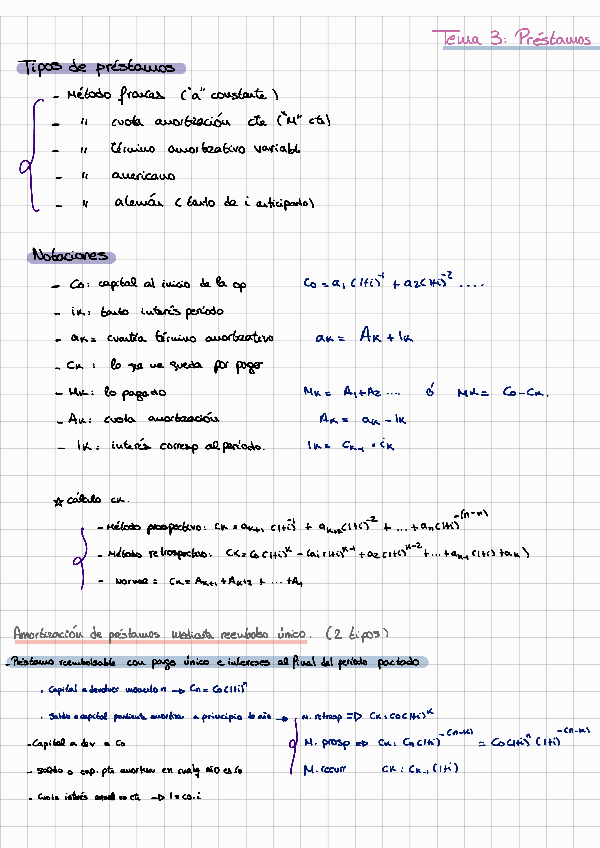 Tema 3: Préstamos
Tipos de préstamos
- Método francés ("a" constante)
- " cuota amortización cte ("M" cte)
- " término amortizativo variable
- " americano
- " alemán (tanto de i anticipado)
Notaciones
- Co: capital al inicio de la op Co = a1 (1+i)^-1 + a2 (1+i)^-2 ....
- ik: tanto interés período
- ak = cuantía término amortizativo ak = Ak + Ik
- Ck: lo que queda por pagar
- Mk: lo pagado Mk = A1+A2 ... ó Mk = Co-Ck.
- Ak: cuota amortización Ak = ak - Ik
- Ik: interés corresp al período. Ik = Ck-1 · ik
☆ Cálculo Ck.
- Método prospectivo: Ck = ak+1 (1+i)^-1 + ak+2 (1+i)^-2 + ... + an (1+i)^-(n-k)
- Método retrospectivo: Ck = Co (1+i)^k - (a1 (1+i)^k-1 + a2 (1+i)^k-2 + ... + ak-1 (1+i) + ak)
- Normal: Ck = Ak+1 + Ak+2 + ... + An
Amortización de préstamos mediante reembolso único. (2 tipos)
- Préstamo reembolsable con pago único e intereses al final del período pactado
· Capital a devolver momento n → Cn = Co (1+i)^n
· Saldo o capital pendiente amortizar a principio de año → M. retrosp ⇒ Ck: Co (1+i)^k
- Capital a dev = Co M. prosp ⇒ Ck: Cn (1+i)^-(n-k) = Co (1+i)^n (1+i)^-(n-k)
- Saldo o cap. pte amortizar en cualq año es Co M. recurr Ck: Ck-1 (1+i)
- Cuota interés anual es cte → I = Co · i